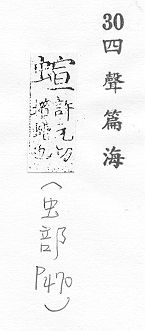 30 四聲篇海
蝖
許元切
也
(虫部 P470)